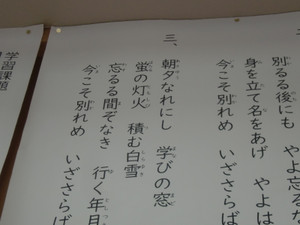 別るる後にも やよ忘るな
身を立て名をあげ やよは
今こそ別れめ いざさらば
三、
朝夕なれにし 学びの窓
蛍の灯火 積む白雪
忘るる間ぞなき 行く年月
今こそ別れめ いざさらば
学習課題